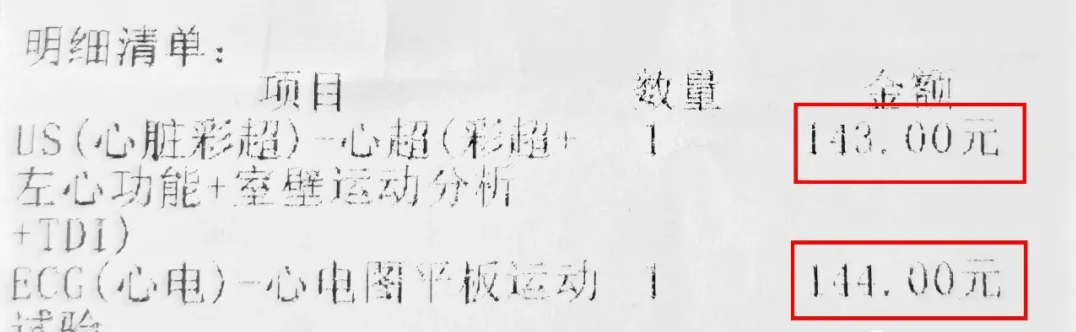 明细清单:
项目 数量 金额
US(心脏彩超)-心超(彩超+ 1 143.00元
左心功能+室壁运动分析
+TDI)
ECG(心电)-心电图平板运动 1 144.00元
试验